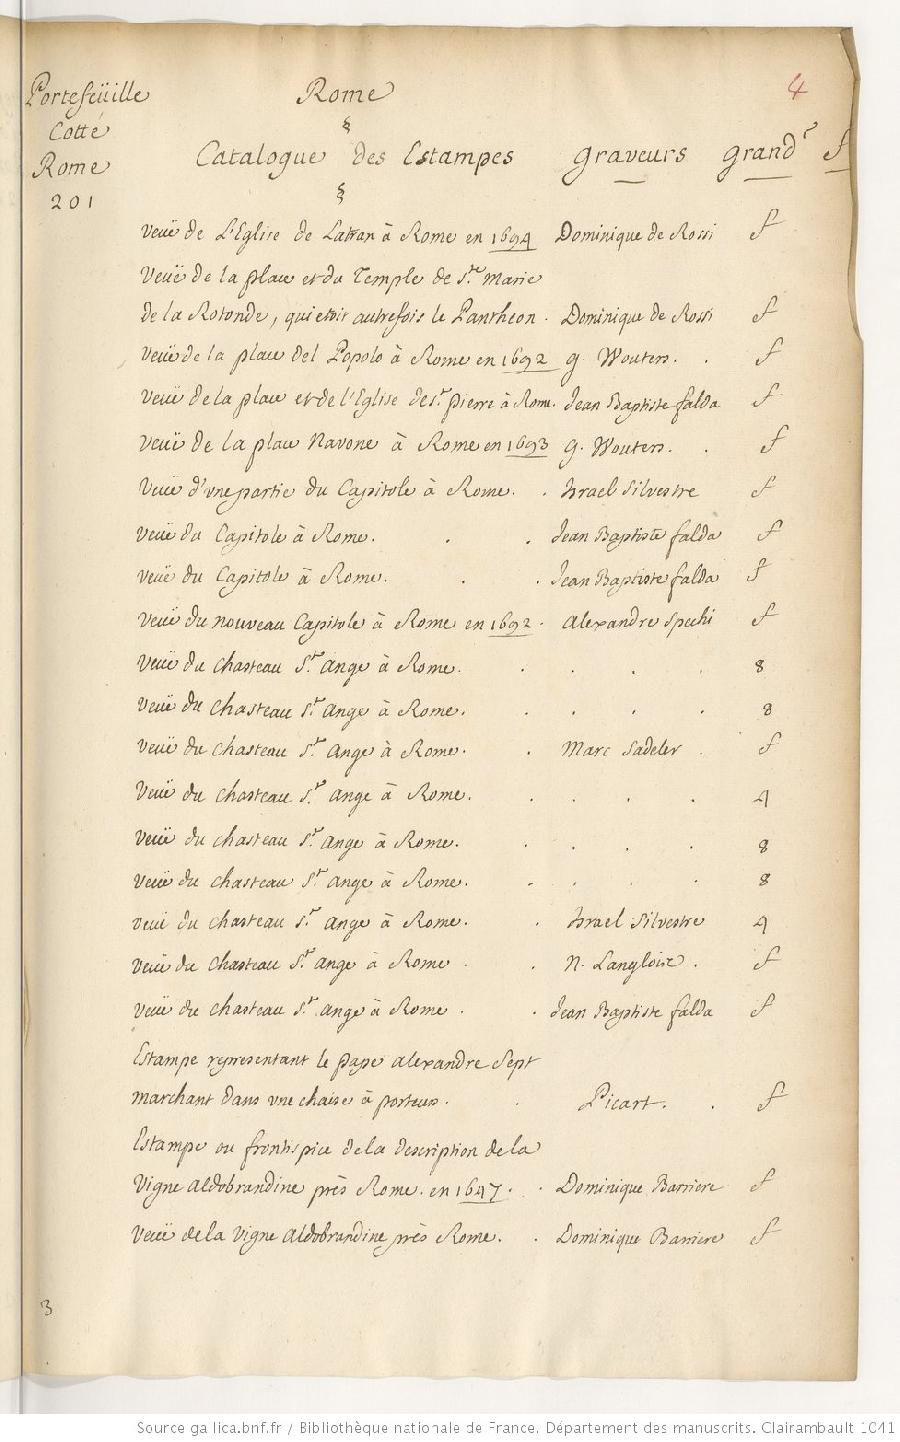 Portefeüille
Cotté
Rome
201
Rome
4
§
Catalogue des Estampes graveurs grandr f
§
Veuë de L'Eglise de Latran à Rome en 1694 Dominique de Rossi f
Veuë de la place et du Temple de Ste Marie
de la Rotonde, qui etoit autrefois le Pantheon. Dominique de Rossi f
Veuë de la place del Popolo à Rome en 1692 g. Wouters. . f
Veuë de la place et de l'Eglise de St pierre à Rome. Jean Baptiste falda f
Veuë de la place Navone à Rome en 1693 g. Wouters. . f
Veuë d'vne partie du Capitole à Rome. . Israel Silvestre f
Veuë du Capitole à Rome. . . Jean Baptiste falda f
Veuë du Capitole à Rome. . . Jean Baptiste falda f
Veuë du nouveau Capitole à Rome en 1692. alexandre Specchi f
Veuë du chasteau St Ange à Rome. . . . . 8
Veuë du chasteau St Ange à Rome. . . . . 8
Veuë du chasteau St Ange à Rome. . Marc Sadeler . f
Veuë du chasteau St Ange à Rome. . . . . 4
Veuë du chasteau St Ange à Rome. . . . . 8
Veuë du chasteau St Ange à Rome. . . . . 8
Veuë du chasteau St Ange à Rome. . Israel Silvestre 4
Veuë du chasteau St Ange à Rome . . N. Langlois . f
Veuë du chasteau St Ange à Rome . . Jean Baptiste falda f
Estampe representant le pape alexandre Sept
marchant dans vne chaise à porteurs. . Picart. . f
Estampe ou frontispice de la description de la
Vigne Aldobrandine près Rome. en 1647. . Dominique Barriere f
Veuë de la Vigne Aldobrandine près Rome. . Dominique Barriere f
3
Source gallica.bnf.fr / Bibliothèque nationale de France. Département des manuscrits. Clairambault 1041